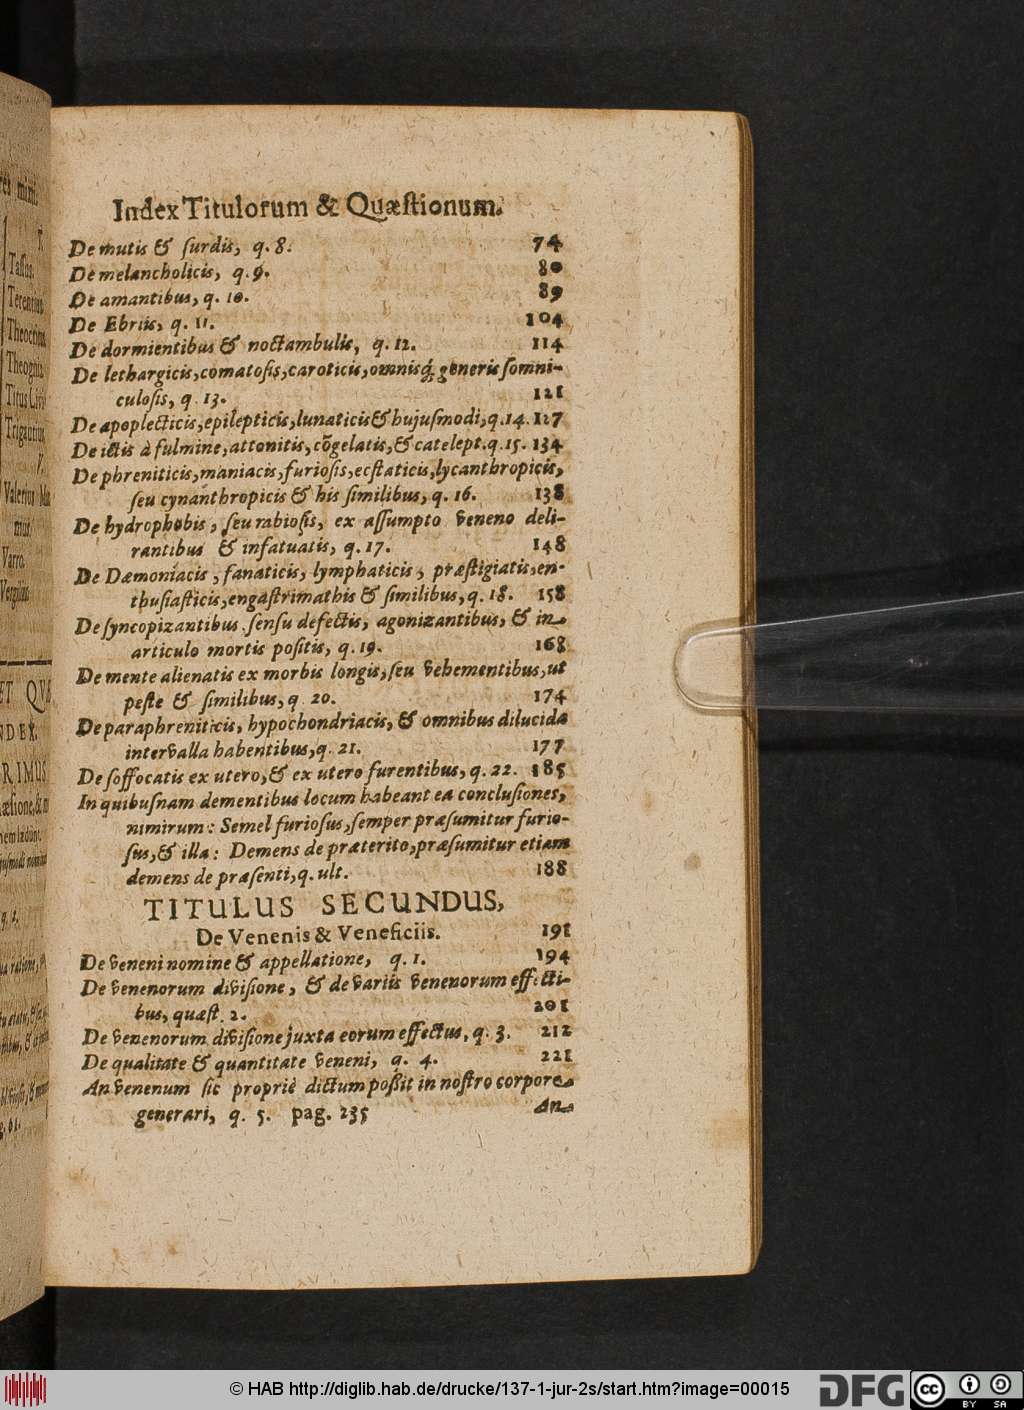 Index Titulorum & Quæſtionum.
De mutis & ſurdis, q. 8. 74
De melancholicis, q. 9. 80
De amantibus, q. 10. 89
De Ebriis, q. 11. 104
De dormientibus & noctambulis, q. 12. 114
De lethargicis, comatoſis, caroticis, omnisq́; generis ſomni-
culoſis, q. 13. 121
De apoplecticis, epilepticis, lunaticis & hujuſmodi, q. 14. 127
De ictis à fulmine, attonitis, cõgelatis, & catelept. q. 15. 134
De phreniticis, maniacis, furioſis, ecſtaticis, lycanthropicis,
ſeu cynanthropicis & his ſimilibus, q. 16. 138
De hydrophobis, ſeu rabioſis, ex aſſumpto veneno deli-
rantibus & infatuatis, q. 17. 148
De Dæmoniacis, fanaticis, lymphaticis, præſtigiatis, en-
thuſiaſticis, engaſtrimathis & ſimilibus, q. 18. 158
De ſyncopizantibus ſenſu defectis, agonizantibus, & in
articulo mortis poſitis, q. 19. 168
De mente alienatis ex morbis longis, ſeu vehementibus, ut
peſte & ſimilibus, q 20. 174
De paraphreniticis, hypochondriacis, & omnibus dilucida
intervalla habentibus, q. 21. 177
De ſoffocatis ex utero, & ex utero furentibus, q. 22. 185
In quibuſnam dementibus locum habeant ea concluſiones,
nimirum: Semel furioſus, ſemper præſumitur furio-
ſus, & illa: Demens de præterito, præſumitur etiam
demens de præſenti, q. ult. 188
TITULUS SECUNDUS,
De Venenis & Veneficiis. 191
De veneni nomine & appellatione, q. 1. 194
De venenorum diviſione, & de variis venenorum effecti-
bus, quæſt. 2. 201
De venenorum diviſione juxta eorum effectus, q. 3. 212
De qualitate & quantitate veneni, q. 4. 221
An venenum ſic propriè dictum poßit in noſtro corpore
generari, q. 5. pag. 235 An
© HAB http://diglib.hab.de/drucke/137-1-jur-2s/start.htm?image=00015
DFG
cc
BY SA